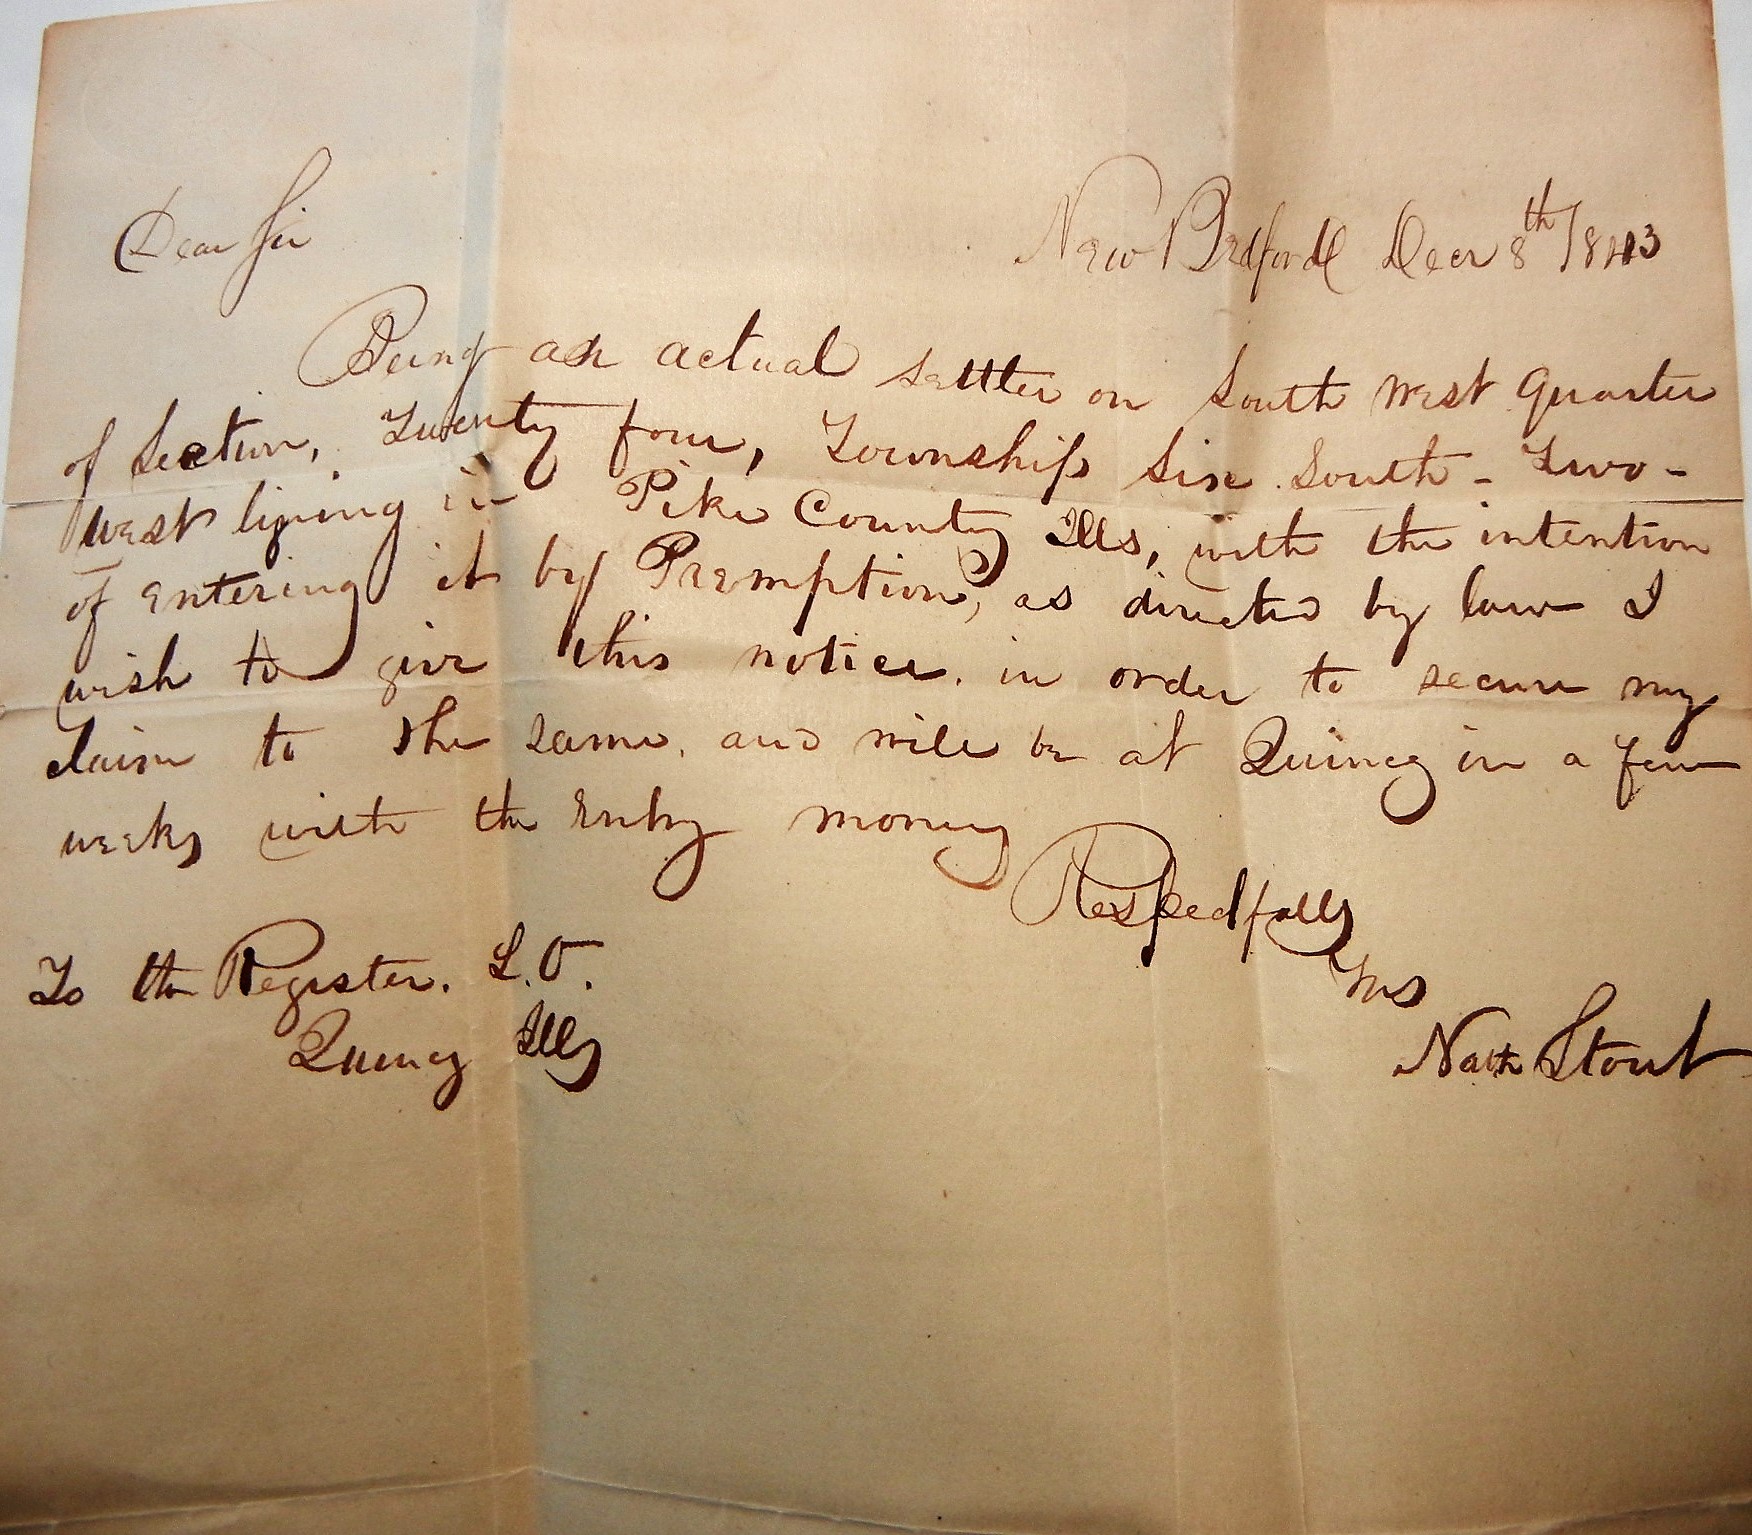 Dear Sir
New Bedford Decr 8th 1843
Being an actual settler on South West Quarter
of Section, Twenty four, Township Six South - Two -
West lying in Pike County Ills, with the intention
of entering it by Preemption, as directed by law I
wish to give this notice. in order to secure my
claim to the same. and will be at Quincy in a few
weeks with the Entry money
Respectfully
Yrs
To the Register. L.O.
Nath Stout
Quincy Ills